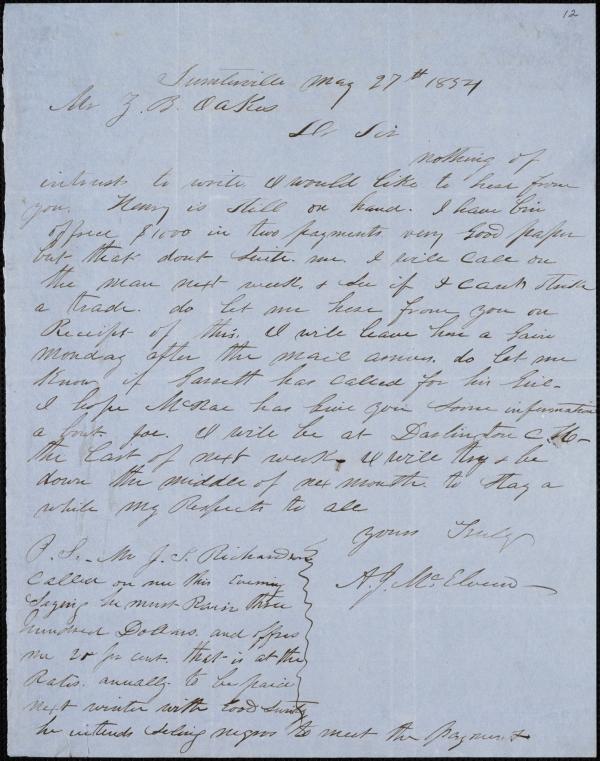 12
Sumterville May 27th 1854
Mr Z. B. Oakes
Dr Sir
nothing of
intrust to write. I would like to hear from
you. Henry is still on hand. I have bin
offred $1000 in two payments very Good paper
but that dont suite me. I will call on
the man next week, & See if I cant
a trade. do let me hear from you on
Receipt of this. I will leave here a Gain
Monday after the mail arrives. do let me
Know if Garrett has called for his
I hope McRae has Give you some information
a bout Joe. I will be at Darlington C. H-
the last of next week- I will try & be
down the middle of nex month. to Stay a
while my Respects to all
yours Truly
A. J. McElveen
P. S.- Mr J. S. Richardson
Called on me this Evening
Saying he must Raise three
hundred Dollars. and offers
me 20 pr cent. that is at the
Rates. annually to be paid
next winter with Good
he intends Seling negros to meet the Payment